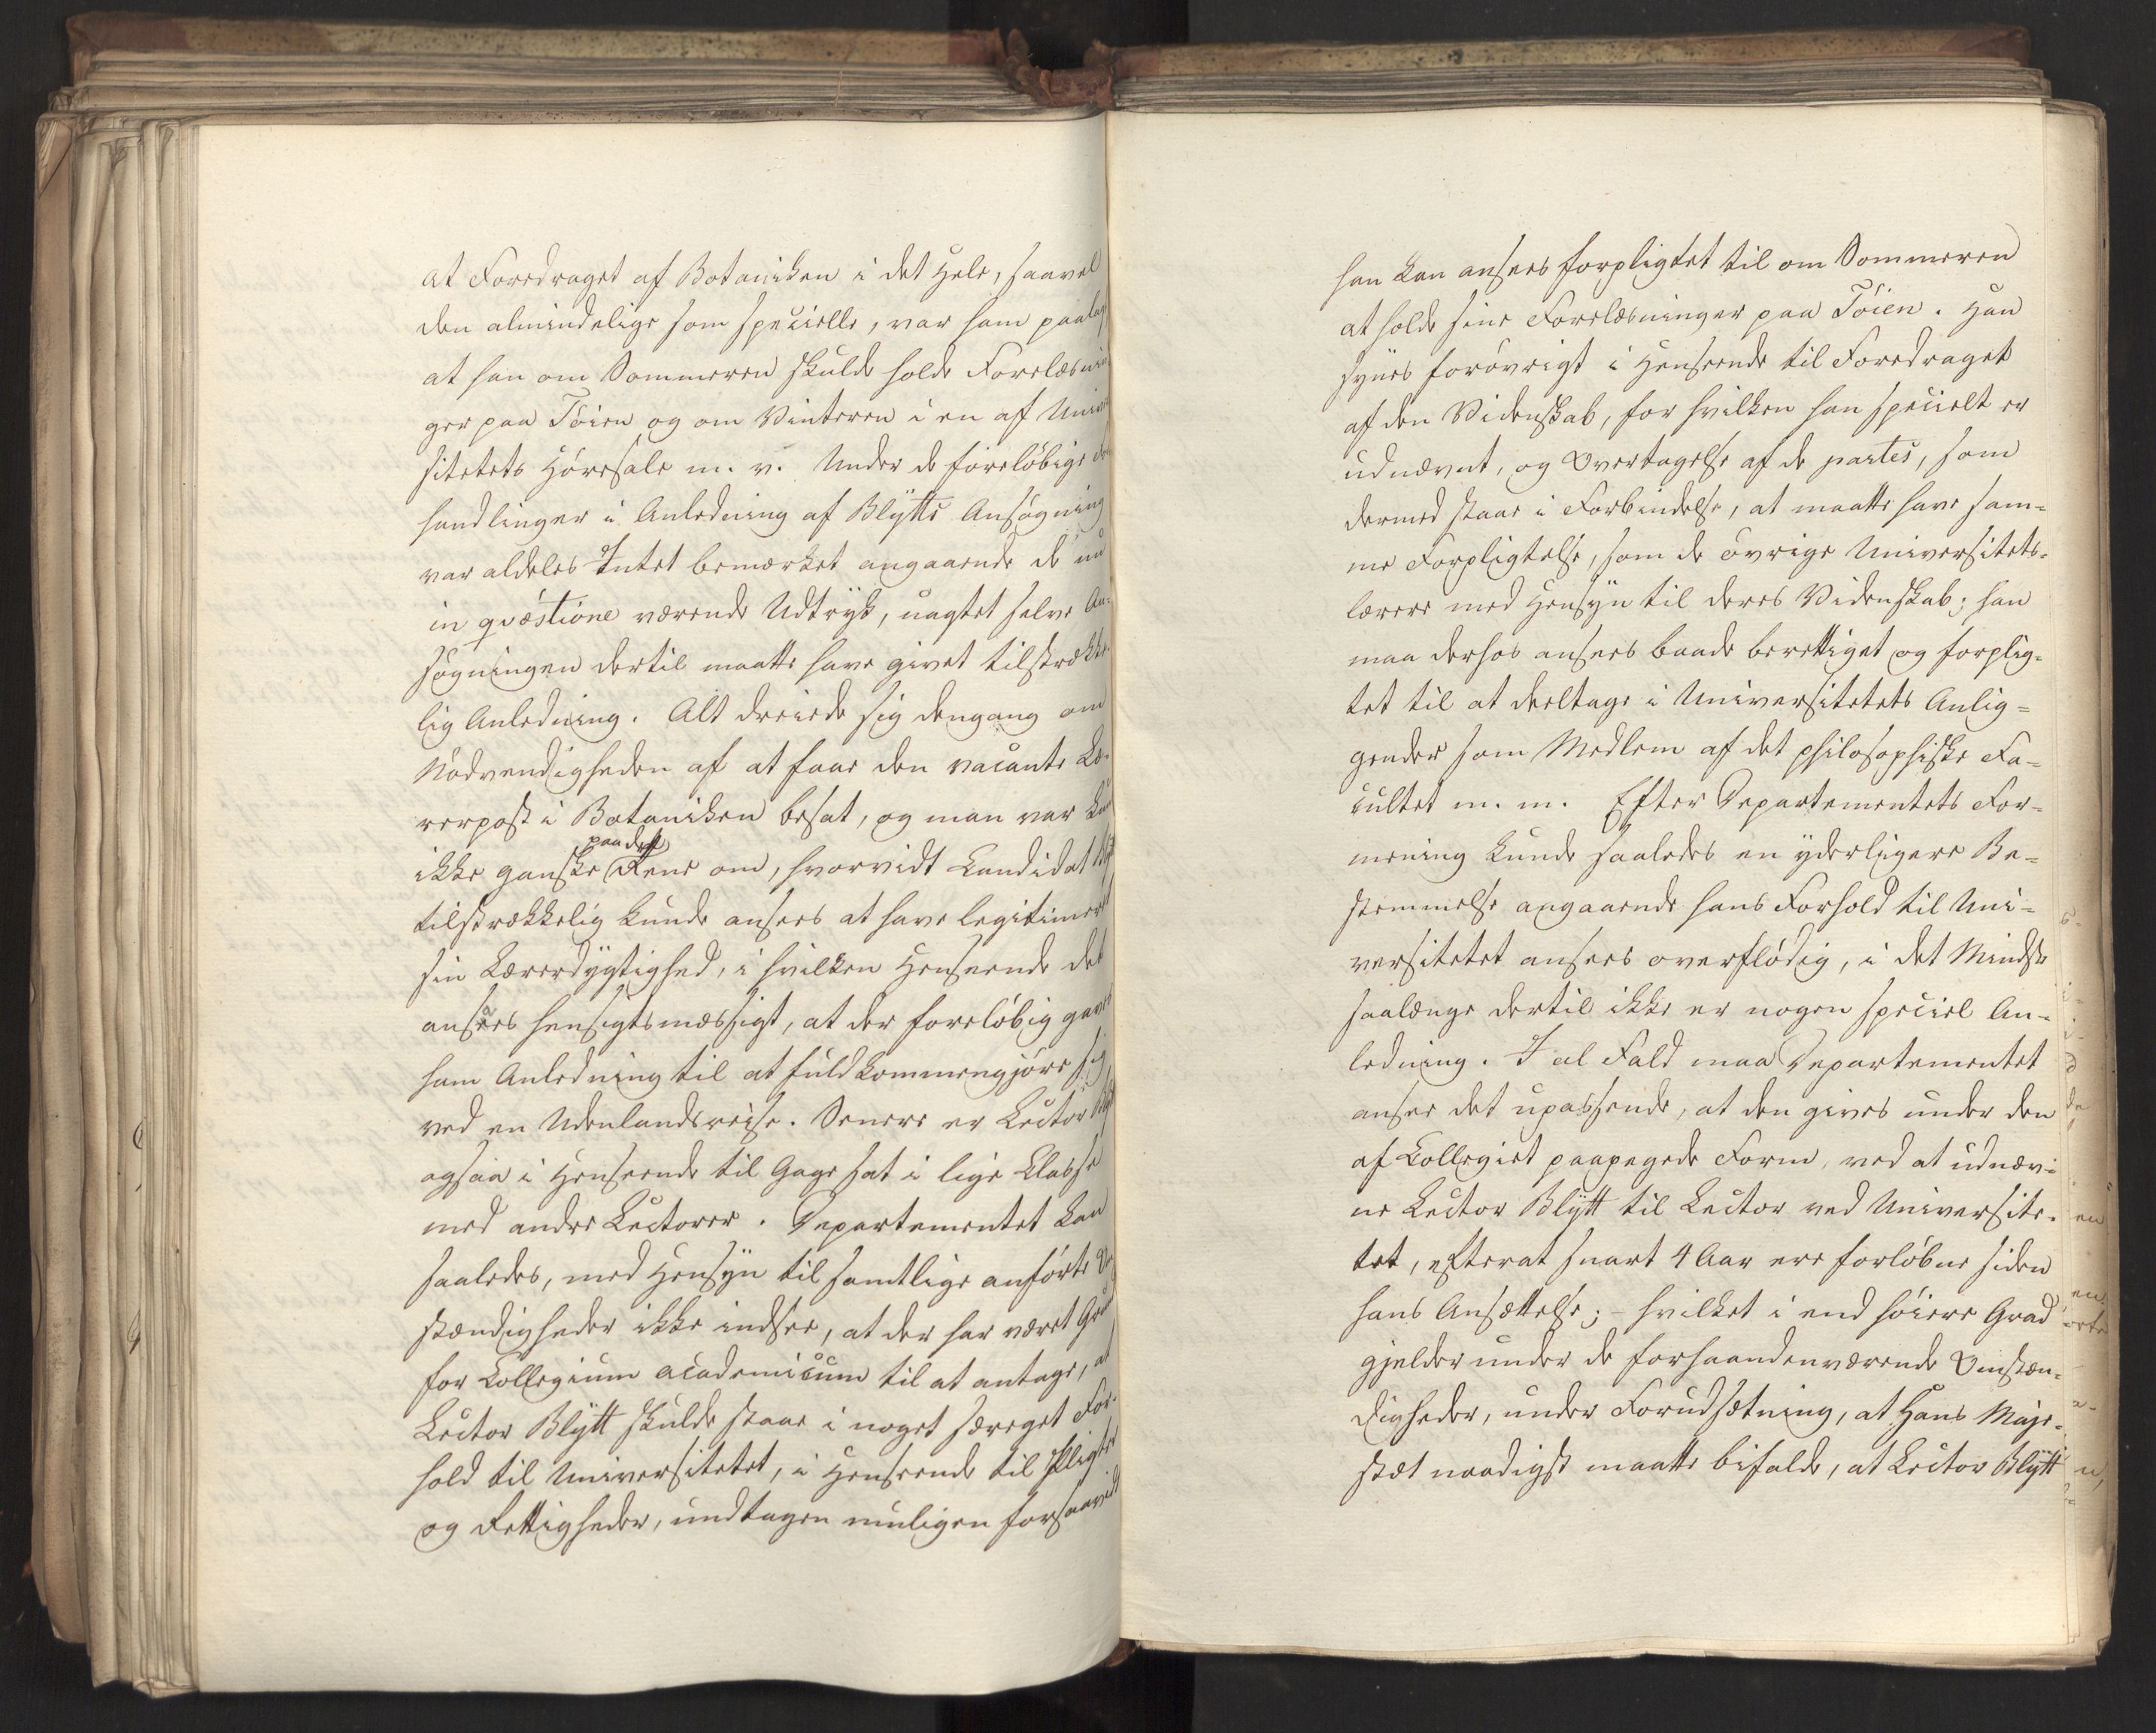 at Foredraget af Botaniken i det Hele, saavel
den almindelige som specielle, var ham paalag
at han om Sommeren skulde holde Forelæsnin
ger paa Töien og om Vinteren i en af Univer
sitetets Høresale m. v. Under de foreløbige
handlinger i Anledning af Blytts Ansøgning
var aldeles Intet bemærket angaaende de nu
in qvæstione værende Udtryk, uagtet selve An-
søgningen dertil maatte have givet tilstrække-
lig Anledning. Alt dreiede sig dengang om
Nødvendigheden af at faae den vacante Læ-
rerpost i Botaniken besat, og man var kun
ikke ganske paa det Rene om, hvorvidt Candidat Blyt
tilstrækkelig kunde ansees at have legitimeret
sin Lærerdygtighed, i hvilken Henseende det
ansaaes hensigtsmæssigt, at der foreløbig gaves
ham Anledning til at fuldkommengjøre sig
ved en Udenlandsreise. Senere er Lector Blyt
ogsaa i Henseende til Gage sat i lige Classe
med andre Lectorer. Departementet kan
saaledes, med Hensyn til samtlige anførte Om
stændigheder ikke indsee, at der har været Grund
for Collegium academicum til at antage, at
Lector Blytt skulde staae i noget særeget For-
hold til Universitetet, i Henseende til Pligter
og Rettigheder, undtagen muligen forsaavidt
han kan ansees forpligtet til om Sommeren
at holde sine Forelæsninger paa Töien. Han
synes forøvrigt i Henseende til Foredraget
af den Videnskab, for hvilken han specielt er
udnævnt, og Overtagelse af de partes, som
dermed staae i Forbindelse, at maatte have sam-
me Forpligtelse, som de øvrige Universitets-
lærere med Hensyn til deres Videnskab; han
maa derhos ansees baade berettiget og forplig-
tet til at deeltage i Universitetets Anlig-
gender som Medlem af det philosophiske Fa-
cultet m. m. Efter Departementets For-
mening kunde saaledes en yderligere Be-
stemmelse angaaende hans Forhold til Uni-
versitetet ansees overflødig, i det Mindste
saalænge dertil ikke er nogen speciel An-
ledning. I al Fald maa Departementet
ansee det upassende, at den gives under den
af Collegiet paapegede Form, ved at udnæv-
ne Lector Blytt til Lector ved Universite-
tet, efterat snart 4 Aar ere forløbne siden
hans Ansættelse; - hvilket i end høiere Grad
gjelder under de forhaandenværende Omstæn-
digheder, under Forudsætning, at Hans Maje-
stæt naadigst maatte bifalde, at Lector Blytt